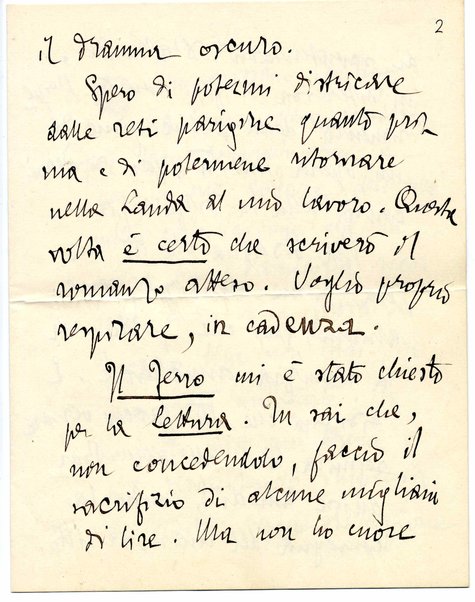 2
il dramma oscuro.
Spero di potermi districare
dalle reti parigine quanto pri=
ma e di potermene ritornare
nella Landa al mio lavoro. Questa
volta è certo che scriverò il
romanzo atteso. Voglio proprio
respirare, in cadenza.
Il Ferro mi è stato chiesto
per la Lettura. Tu sai che,
non concedendolo, faccio il
sacrifizio di alcune migliaia
di lire. Ma non ho cuore